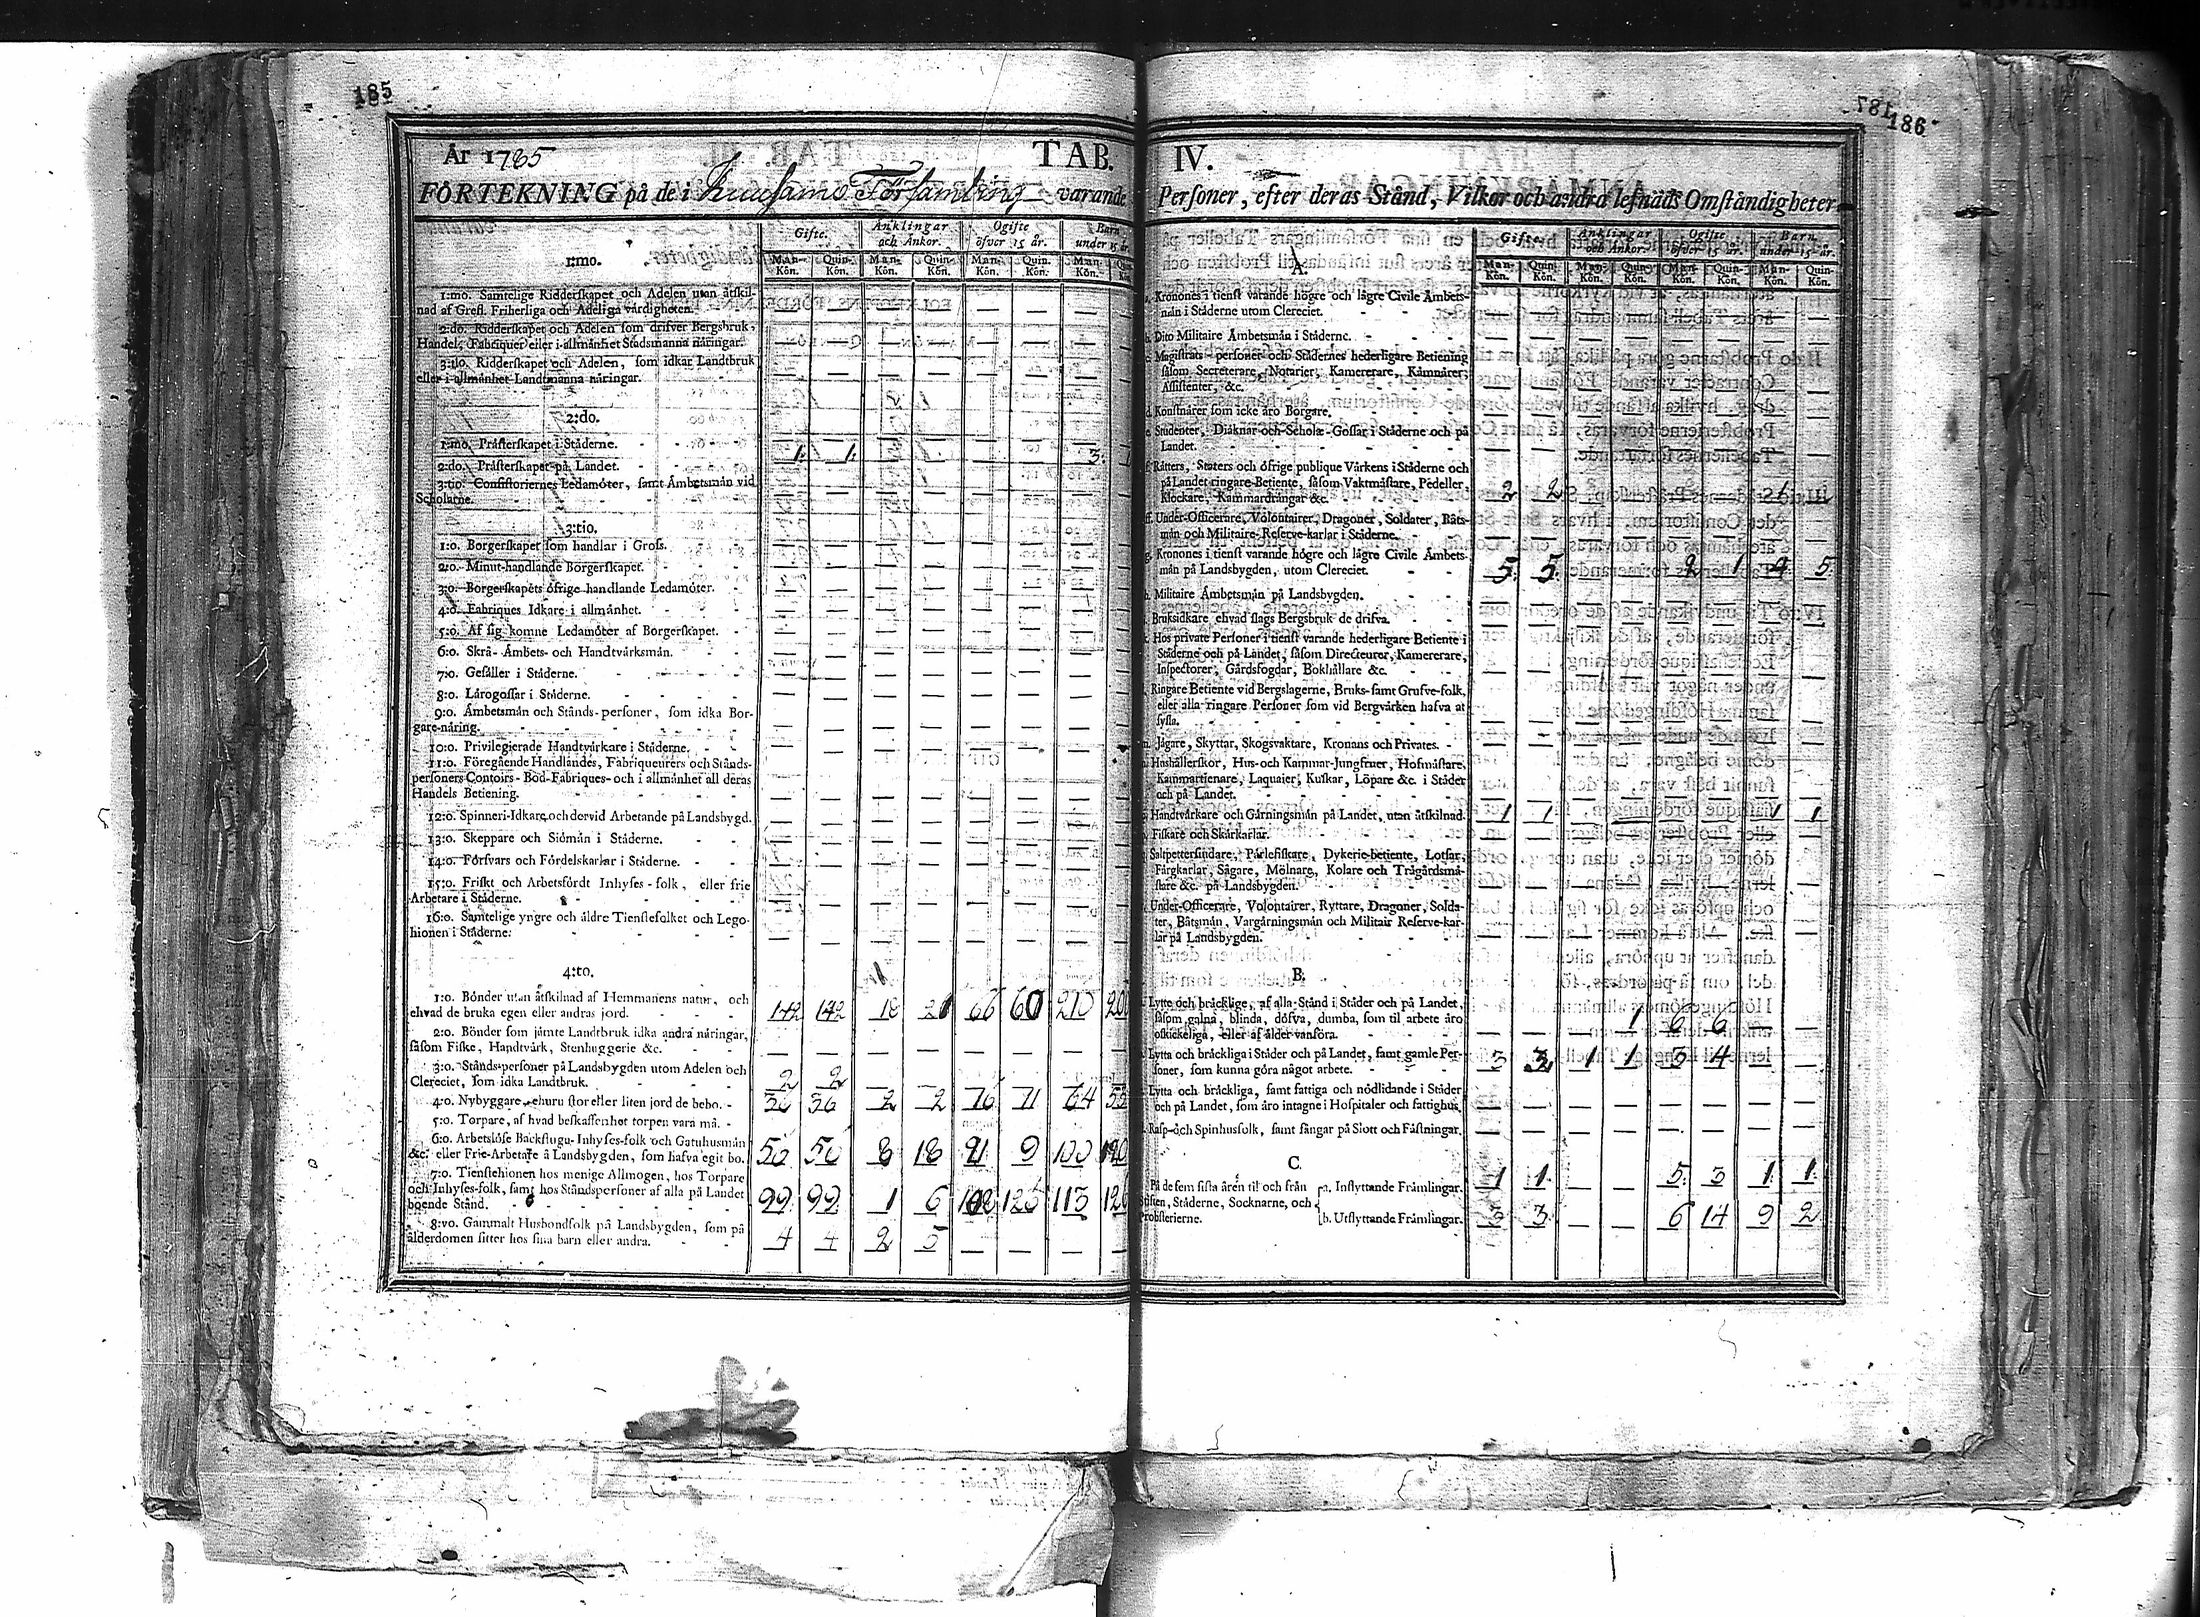 185
År 1785 TAB.
FÖRTEKNING på de i Kuusamo Försambling varande
1:mo.
Gifte.
Änklingar och Änkor.
Ogifte öfver 15 år.
Barn under 15 år.
Man-Kön. Quin-Kön. Man-Kön. Quin-Kön. Man-Kön. Quin-Kön. Man-Kön. Quin-Kön.
1:mo. Samtelige Ridderskapet och Adelen utan åtskil-
nad af Grefl. Friherliga och Adeliga värdigheten. — — — — — — —
2:do. Ridderskapet och Adelen som drifver Bergsbruk,
Handel, Fabriquer eller i allmänhet Stadsmanna näringar. — — — — — — —
3:tio. Ridderskapet och Adelen, som idkar Landtbruk
eller i allmänhet Landtmanna näringar. — — — — — — —
2:do.
1:mo. Prästerskapet i Städerne.
2:do. Prästerskapet på Landet. 1. 1. 3.
3:tio. Consistoriernes Ledamöter, samt Ämbetsmän vid
Scholarne.
3:tio.
1:o. Borgerskapet som handlar i Gross.
2:o. Minut-handlande Borgerskapet.
3:o. Borgerskapets öfrige handlande Ledamöter.
4:o. Fabriques Idkare i allmänhet.
5:o. Af sig komne Ledamöter af Borgerskapet.
6:o. Skrå- Ämbets- och Handtvärksmän.
7:o. Gesäller i Städerne.
8:o. Lärogossar i Städerne.
9:o. Ämbetsmän och Stånds-personer, som idka Bor-
gare-näring.
10:o. Privilegierade Handtvärkare i Städerne.
11:o. Föregående Handlandes, Fabriqueurers och Stånds-
personers Contoirs- Bod-Fabriques- och i allmänhet all deras
Handels Betiening.
12:o. Spinneri-Idkare och dervid Arbetande på Landsbygd.
13:o. Skeppare och Siömän i Städerne.
14:o. Försvars och Fördelskarlar i Städerne.
15:o. Friskt och Arbetsfördt Inhyses-folk, eller frie
Arbetare i Städerne.
16:o. Samtelige yngre och äldre Tienstefolket och Lego-
hionen i Städerne.
4:to.
1:o. Bönder utan åtskilnad af Hemmanens natur, och
ehvad de bruka egen eller andras jord. 142 142 18 21 66 60 210 200
2:o. Bönder som jämte Landtbruk idka andra näringar,
såsom Fiske, Handtvärk, Stenhuggerie &c. — — — — — — —
3:o. Stånds-personer på Landsbygden utom Adelen och
Clereciet, som idka Landtbruk. 2 2 — — — — —
4:o. Nybyggare, ehuru stor eller liten jord de bebo. 36 36 2 2 16 11 64
5:o. Torpare, af hvad beskaffenhet torpen vara må.
6:o. Arbetslöse Backstugu-Inhyses-folk och Gatuhusmän
&c. eller Frie-Arbetare å Landsbygden, som hafva egit bo. 50 50 8 18 9 100
7:o. Tienstehionen hos menige Allmogen, hos Torpare
och Inhyses-folk, samt hos Ståndspersoner af alla på Landet
boende Stånd. 99 99 1 6 113
8:vo. Gammalt Husbondfolk på Landsbygden, som på
ålderdomen sitter hos sina barn eller andra. 4 4 2 5 — — — —
187
186
IV.
Personer, efter deras Stånd, Vilkor och andra lefnads Omständigheter.
A.
Gifte.
Änklingar och Änkor.
Ogifte öfver 15 år.
Barn under 15 år.
Man-Kön. Quin-Kön. Man-Kön. Quin-Kön. Man-Kön. Quin-Kön. Man-Kön. Quin-Kön.
Kronones i tienst varande högre och lägre Civile Ämbets-
män i Städerne utom Clereciet.
Dito Militaire Ämbetsmän i Städerne.
Magistrats-personer och Städernes hederligare Betiening
såsom Secreterare, Notarier, Kamererare, Kämnärer,
Assistenter, &c.
d. Konstnärer som icke äro Borgare.
e. Studenter, Diäknar och Scholæ-Gossar i Städerne och på
Landet.
f. Rätters, Staters och öfrige publique Värkens i Städerne och
på Landet ringare Betiente, såsom Vaktmästare, Pedeller,
Klockare, Kammardrängar &c. 2 2
ff. Under-Officerare, Volontairer, Dragoner, Soldater, Båts-
män och Militaire-Reserve-karlar i Städerne.
g. Kronones i tienst varande högre och lägre Civile Ämbets-
män på Landsbygden, utom Clereciet. 5. 5. 2 1 4 5
h. Militaire Ämbetsmän på Landsbygden.
Bruksidkare ehvad slags Bergsbruk de drifva.
Hos private Personer i tienst varande hederligare Betiente i
Städerne och på Landet, såsom Directeurer, Kamererare,
Inspectorer, Gårdsfogdar, Bokhållare &c.
Ringare Betiente vid Bergslagerne, Bruks- samt Grufve-folk,
eller alla ringare Personer som vid Bergvärken hafva at
sysla.
m. Jägare, Skyttar, Skogsvaktare, Kronans och Privates.
Hushållerskor, Hus- och Kammar-Jungfruer, Hofmästare,
Kammartienare, Laquaier, Kuskar, Löpare &c. i Städer
och på Landet.
Handtvärkare och Gärningsmän på Landet, utan åtskilnad. 1 1 1 1
Fiskare och Skärkarlar.
Saltpettersiudare, Pärlefiskare, Dykerie-betiente, Lotsar,
Färgkarlar, Sågare, Mölnare, Kolare och Trägårdsmä-
stare &c. på Landsbygden.
Under-Officerare, Volontairer, Ryttare, Dragoner, Solda-
ter, Båtsmän, Vargärningsmän och Militair Reserve-kar-
lar på Landsbygden.
B.
Lytte och bräcklige, af alla Stånd i Städer och på Landet,
såsom galna, blinda, döfva, dumba, som til arbete äro
oskickeliga, eller af ålder vanföra. — — — 1 6 6 — —
Lytta och bräckliga i Städer och på Landet, samt gamle Per-
soner, som kunna göra något arbete. 3 3 1 1 3 4 — —
Lytta och bräckliga, samt fattiga och nödlidande i Städer
och på Landet, som äro intagne i Hospitaler och fattighus.
Rasp- och Spinhusfolk, samt fångar på Slott och Fästningar.
C.
På de sem sista åren til och från
Stiften, Städerne, Socknarne, och
Probsterierne.
a. Inflyttande Främlingar. 1 1. 5. 3 1. 1.
b. Utflyttande Främlingar. 3 3. 6 14 9 2